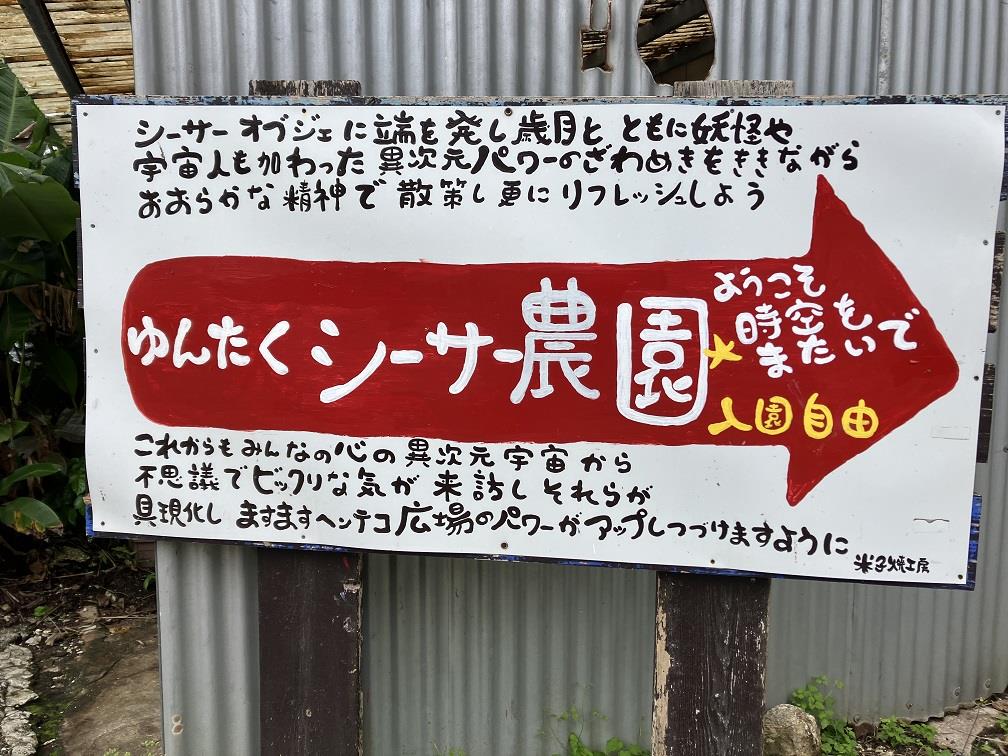 シーサーオブジェに端を発し歳月とともに妖怪や
宇宙人も加わった異次元パワーのざわめきをききながら
おおらかな精神で散策し更にリフレッシュしよう
ゆんたくシーサー農園
ようこそ
時空を
またいで
入園自由
これからもみんなの心の異次元宇宙から
不思議でビックリな気が来訪しそれらが
具現化しますますヘンテコ広場のパワーがアップしつづけますように
米子焼工房